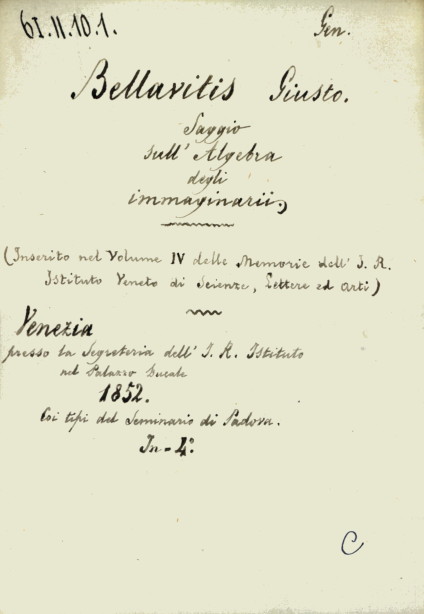 61.II.10.1.
Gen.
Bellavitis Giusto.
Saggio
sull' Algebra
degli
immaginarii.
(Inserito nel Volume IV delle Memorie dell' I. R.
Istituto Veneto di Scienze, Lettere ed Arti)
Venezia
presso la Segreteria dell' I. R. Istituto
nel Palazzo Ducale
1852.
Coi tipi del Seminario di Padova.
In-4.º
C